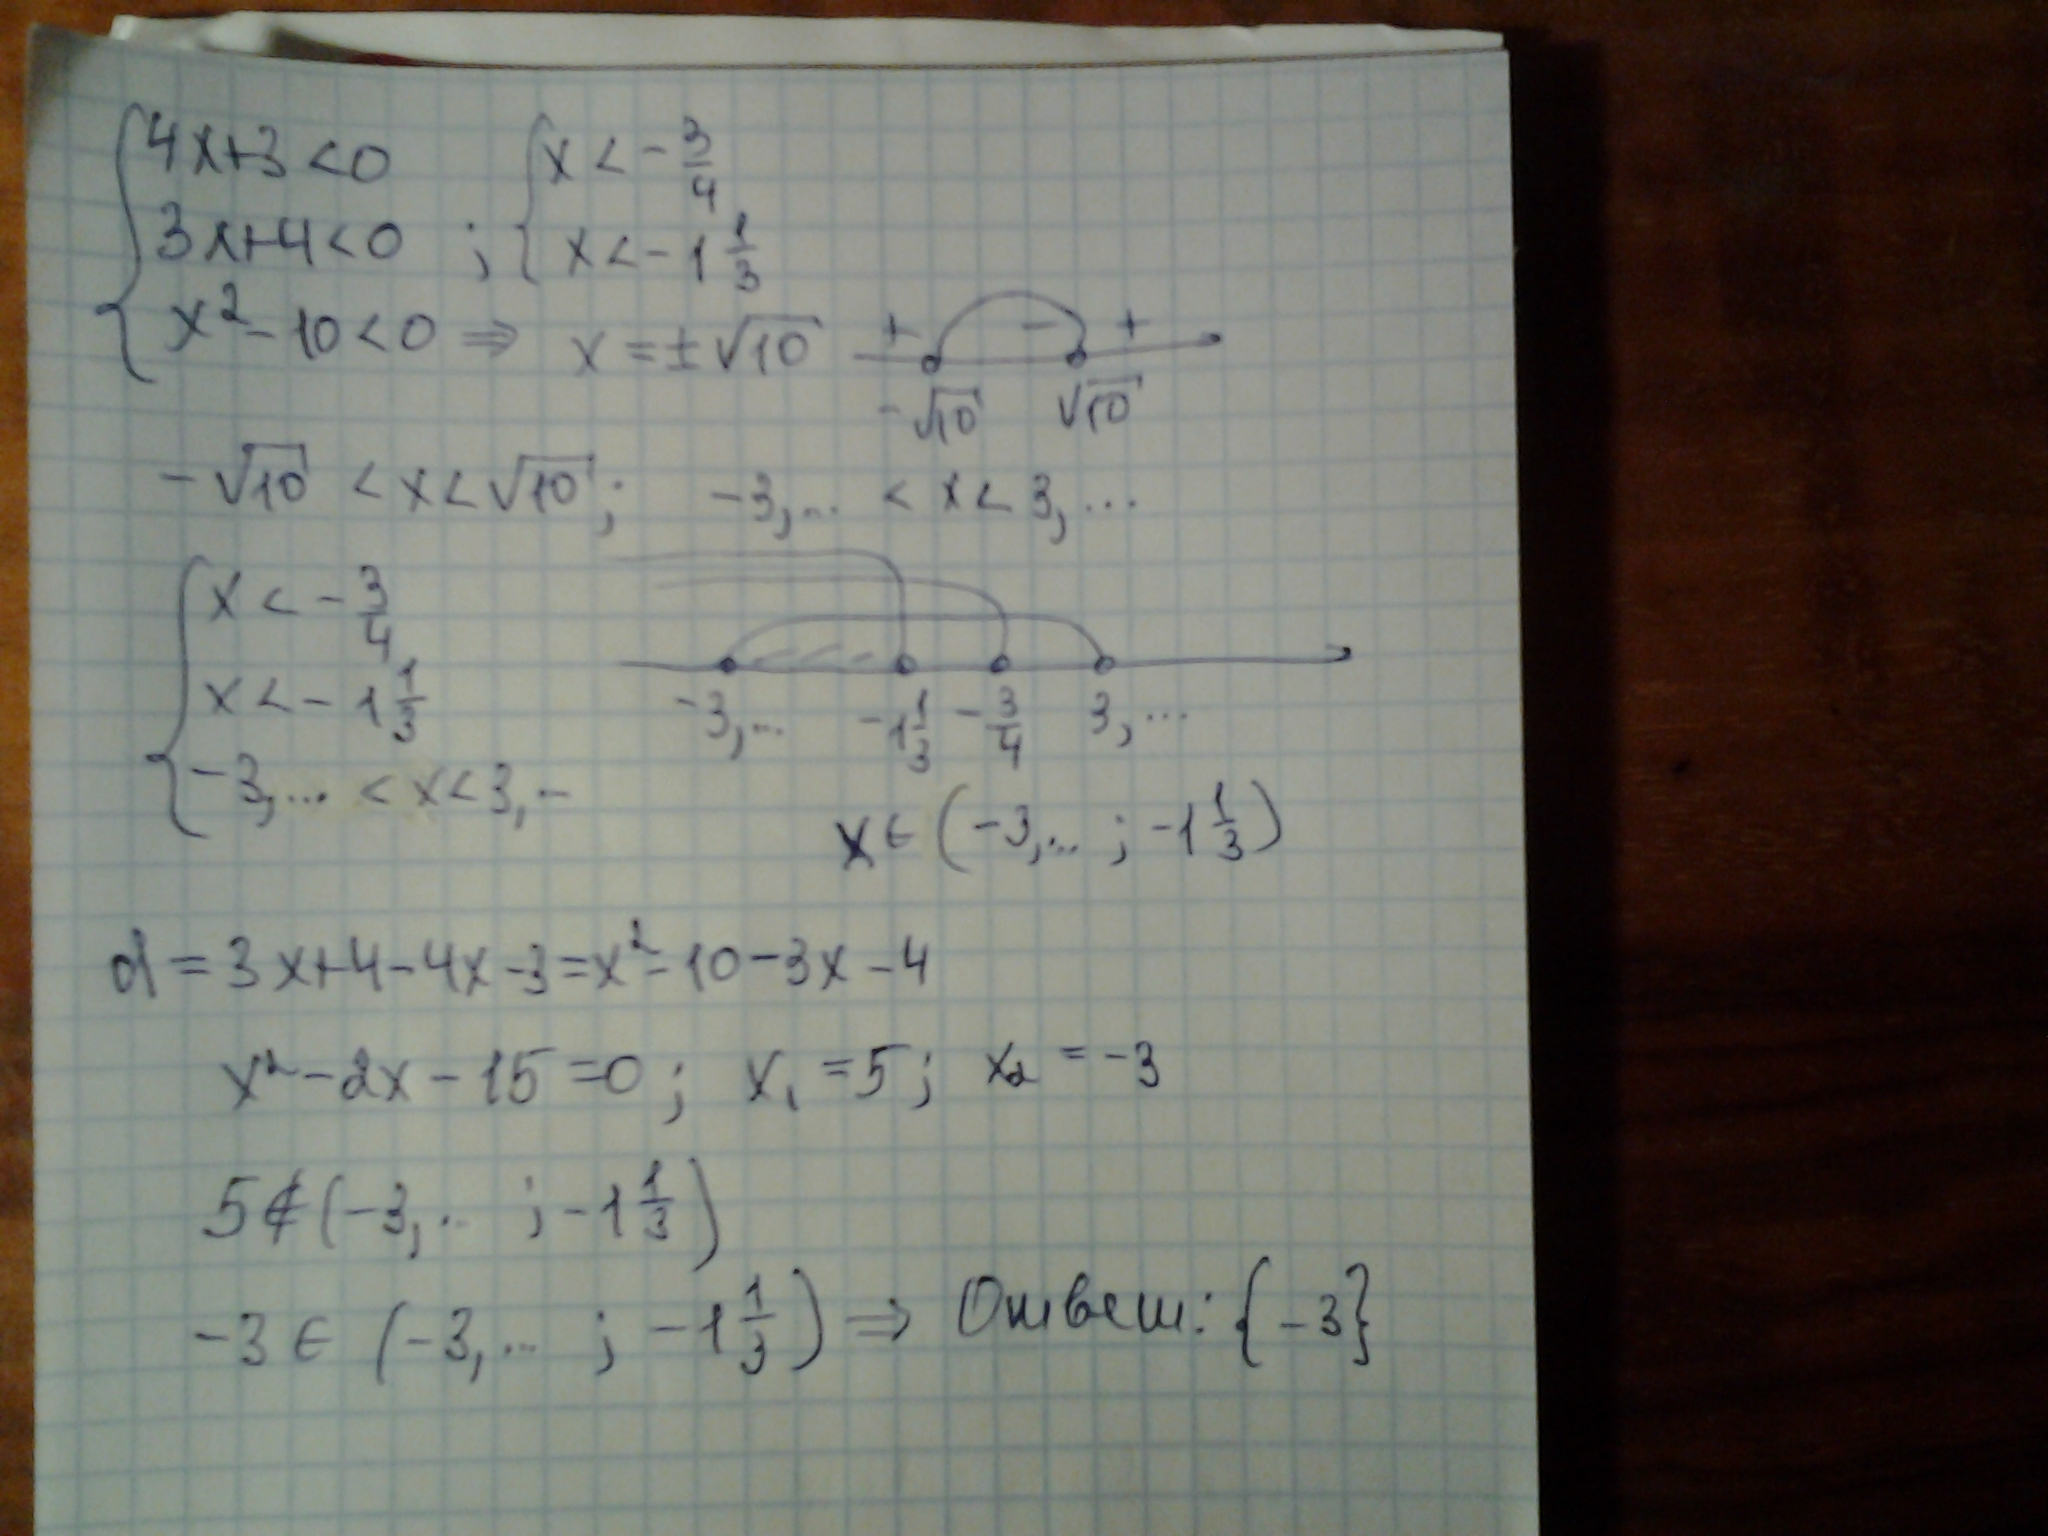 4x+3<0 ; x < -3/4
3x+4<0 x < -1 1/3
x² - 10 < 0 ⇒ x = ±√10 + - +
-√10 √10
-√10 < x < √10; -3,... < x < 3,...
x < -3/4
x < -1 1/3
-3,... < x < 3,..
-3,... -1 1/3 -3/4 3,...
x ∈ (-3,... ; -1 1/3)
d = 3x+4-4x-3 = x²-10-3x-4
x²-2x-15=0; x₁=5; x₂=-3
5 ∉ (-3,... ; -1 1/3)
-3 ∈ (-3,... ; -1 1/3) ⇒ Ответ: {-3}